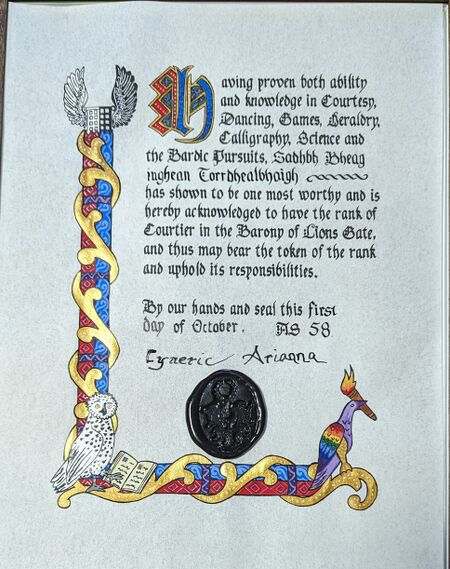 Having proven both ability
and knowledge in Courtesy,
Dancing, Games, Heraldry,
Calligraphy, Science and
the Bardic Pursuits, Sadhbh Bheag
inghean Torrdhealbhaigh
has shown to be one most worthy and is
hereby acknowledged to have the rank of
Courtier in the Barony of Lions Gate,
and thus may bear the token of the rank
and uphold its responsibilities.
By our hands and seal this first
day of October. AS 58
Arianna